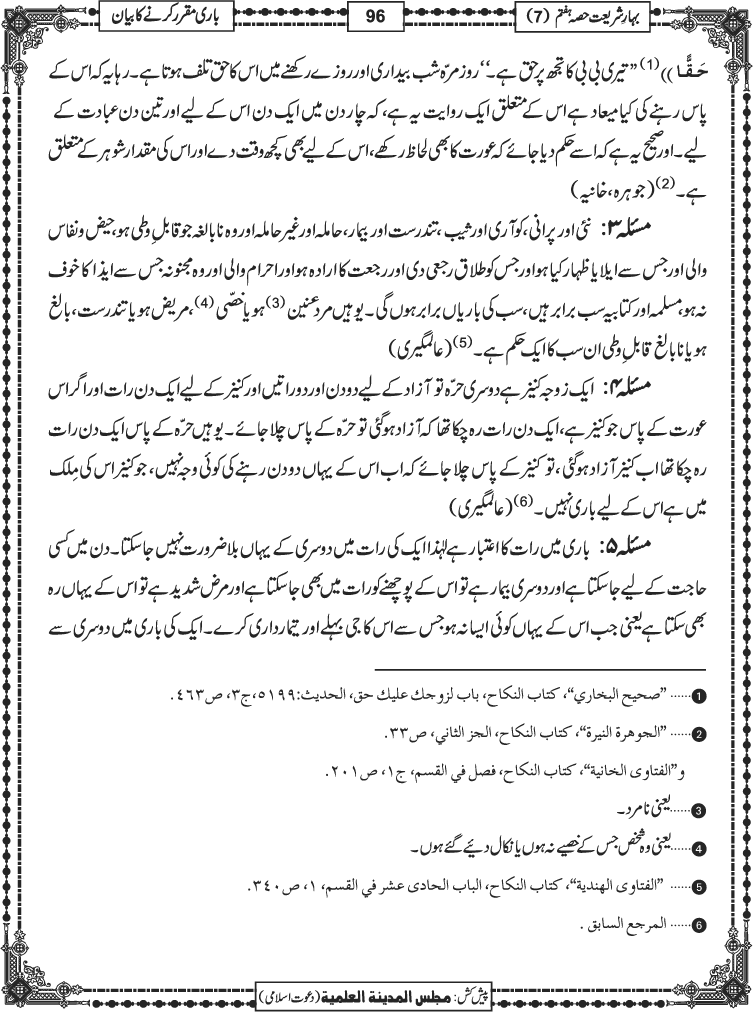 بہارِ شریعت حصہ ہفتم (7)
96
باری مقرر کرنے کا بیان
حَقًّا)) (1) ’’تیری بی بی کا تجھ پر حق ہے۔‘‘ روز مرّہ شب بیداری اور روزے رکھنے میں اس کا حق تلف ہوتا ہے۔ رہا یہ کہ اس کے
پاس رہنے کی کیا میعاد ہے اس کے متعلق ایک روایت یہ ہے، کہ چار دن میں ایک دن اس کے لیے اور تین دن عبادت کے
لیے۔ اور صحیح یہ ہے کہ اسے حکم دیا جائے کہ عورت کا بھی لحاظ رکھے، اس کے لیے بھی کچھ وقت دے اور اس کی مقدار شوہر کے متعلق
ہے۔ (2) (جوہرہ، خانیہ)
مسئلہ ۳: نئی اور پرانی، کوآری اور ثیب، تندرست اور بیمار، حاملہ اور غیر حاملہ اور وہ نابالغہ جو قابلِ وطی ہو، حیض و نفاس
والی اور جس سے ایلا یا ظہار کیا ہو اور جس کو طلاق رجعی دی اور رجعت کا ارادہ ہو اور احرام والی اور وہ مجنونہ جس سے ایذا کا خوف
نہ ہو، مسلمہ اور کتابیہ سب برابر ہیں، سب کی باریاں برابر ہوں گی۔ یوہیں مرد عنین (3) ہو یا خصّی (4)، مریض ہو یا تندرست، بالغ
ہو یا نابالغ قابلِ وطی ان سب کا ایک حکم ہے۔ (5) (عالمگیری)
مسئلہ ۴: ایک زوجہ کنیز ہے دوسری حرّہ تو آزاد کے لیے دو دن اور دو راتیں اور کنیز کے لیے ایک دن رات اور اگر اس
عورت کے پاس جو کنیز ہے، ایک دن رات رہ چکا تھا کہ آزاد ہوگئی تو حرّہ کے پاس چلا جائے۔ یوہیں حرّہ کے پاس ایک دن رات
رہ چکا تھا اب کنیز آزاد ہوگئی، تو کنیز کے پاس چلا جائے کہ اب اس کے یہاں دو دن رہنے کی کوئی وجہ نہیں، جو کنیز اس کی مِلک
میں ہے اس کے لیے باری نہیں۔ (6) (عالمگیری)
مسئلہ ۵: باری میں رات کا اعتبار ہے لہٰذا ایک کی رات میں دوسری کے یہاں بلا ضرورت نہیں جاسکتا۔ دن میں کسی
حاجت کے لیے جاسکتا ہے اور دوسری بیمار ہے تو اس کے پوچھنے کو رات میں بھی جاسکتا ہے اور مرض شدید ہے تو اس کے یہاں رہ
بھی سکتا ہے یعنی جب اس کے یہاں کوئی ایسا نہ ہو جس سے اس کا جی بہلے اور تیمارداری کرے۔ ایک کی باری میں دوسری سے
1...... ’’صحیح البخاري‘‘، کتاب النکاح، باب لزوجك علیك حق، الحدیث:۵۱۹۹، ج۳، ص۴۶۳.
2...... ’’الجوھرۃ النیرۃ‘‘، کتاب النکاح، الجز الثاني، ص۳۳.
و’’الفتاوی الخانیة‘‘، کتاب النکاح، فصل في القسم، ج۱، ص۲۰۱.
3......یعنی نامرد۔
4......یعنی وہ شخص جس کے خصیے نہ ہوں یا نکال دئیے گئے ہوں۔
5...... ’’الفتاوی الھندیة‘‘، کتاب النکاح، الباب الحادی عشر في القسم، ۱، ص۳۴۰.
6...... المرجع السابق .
پیش کش: مجلس المدینۃ العلمیۃ (دعوتِ اسلامی)